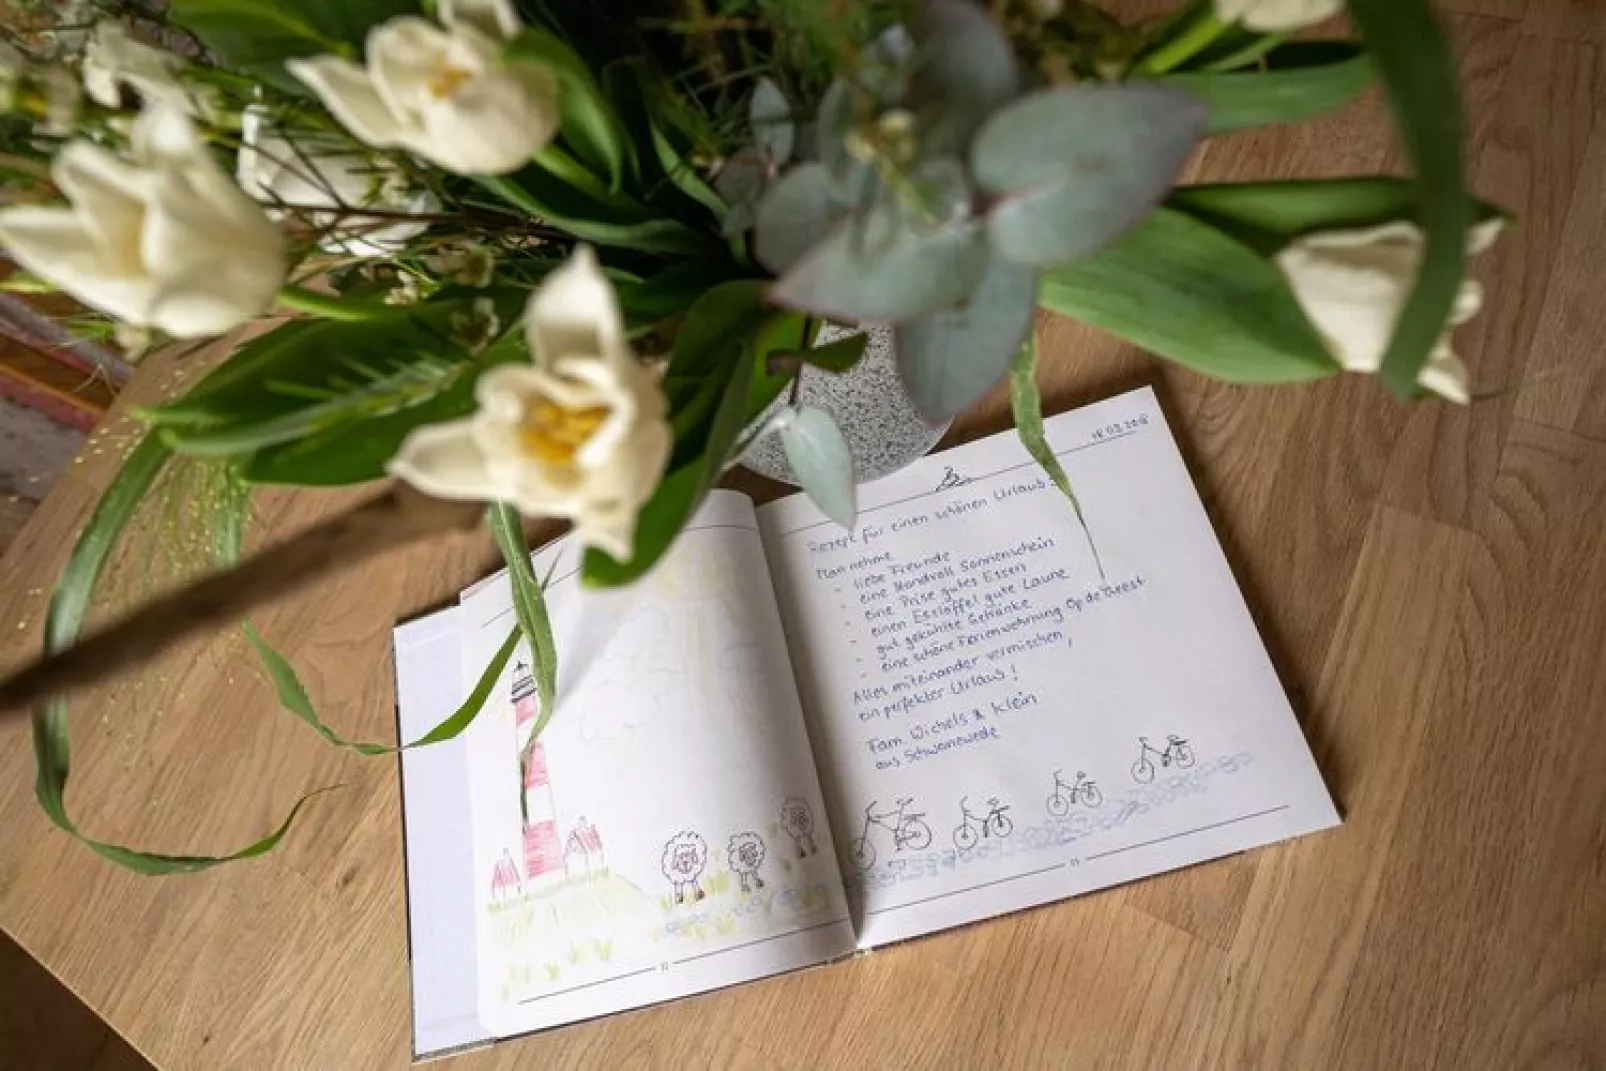 18.03.2018
Rezept für einen schönen Urlaub:
Man nehme
- liebe Freunde
- eine Handvoll Sonnenschein
- eine Prise gutes Essen
- einen Esslöffel gute Laune
- gut gekühlte Getränke
- eine schöne Ferienwohnung Op de Geest
Alles miteinander vermischen,
ein perfekter Urlaub!
Fam. Wichels & Klein
aus Schwanewede